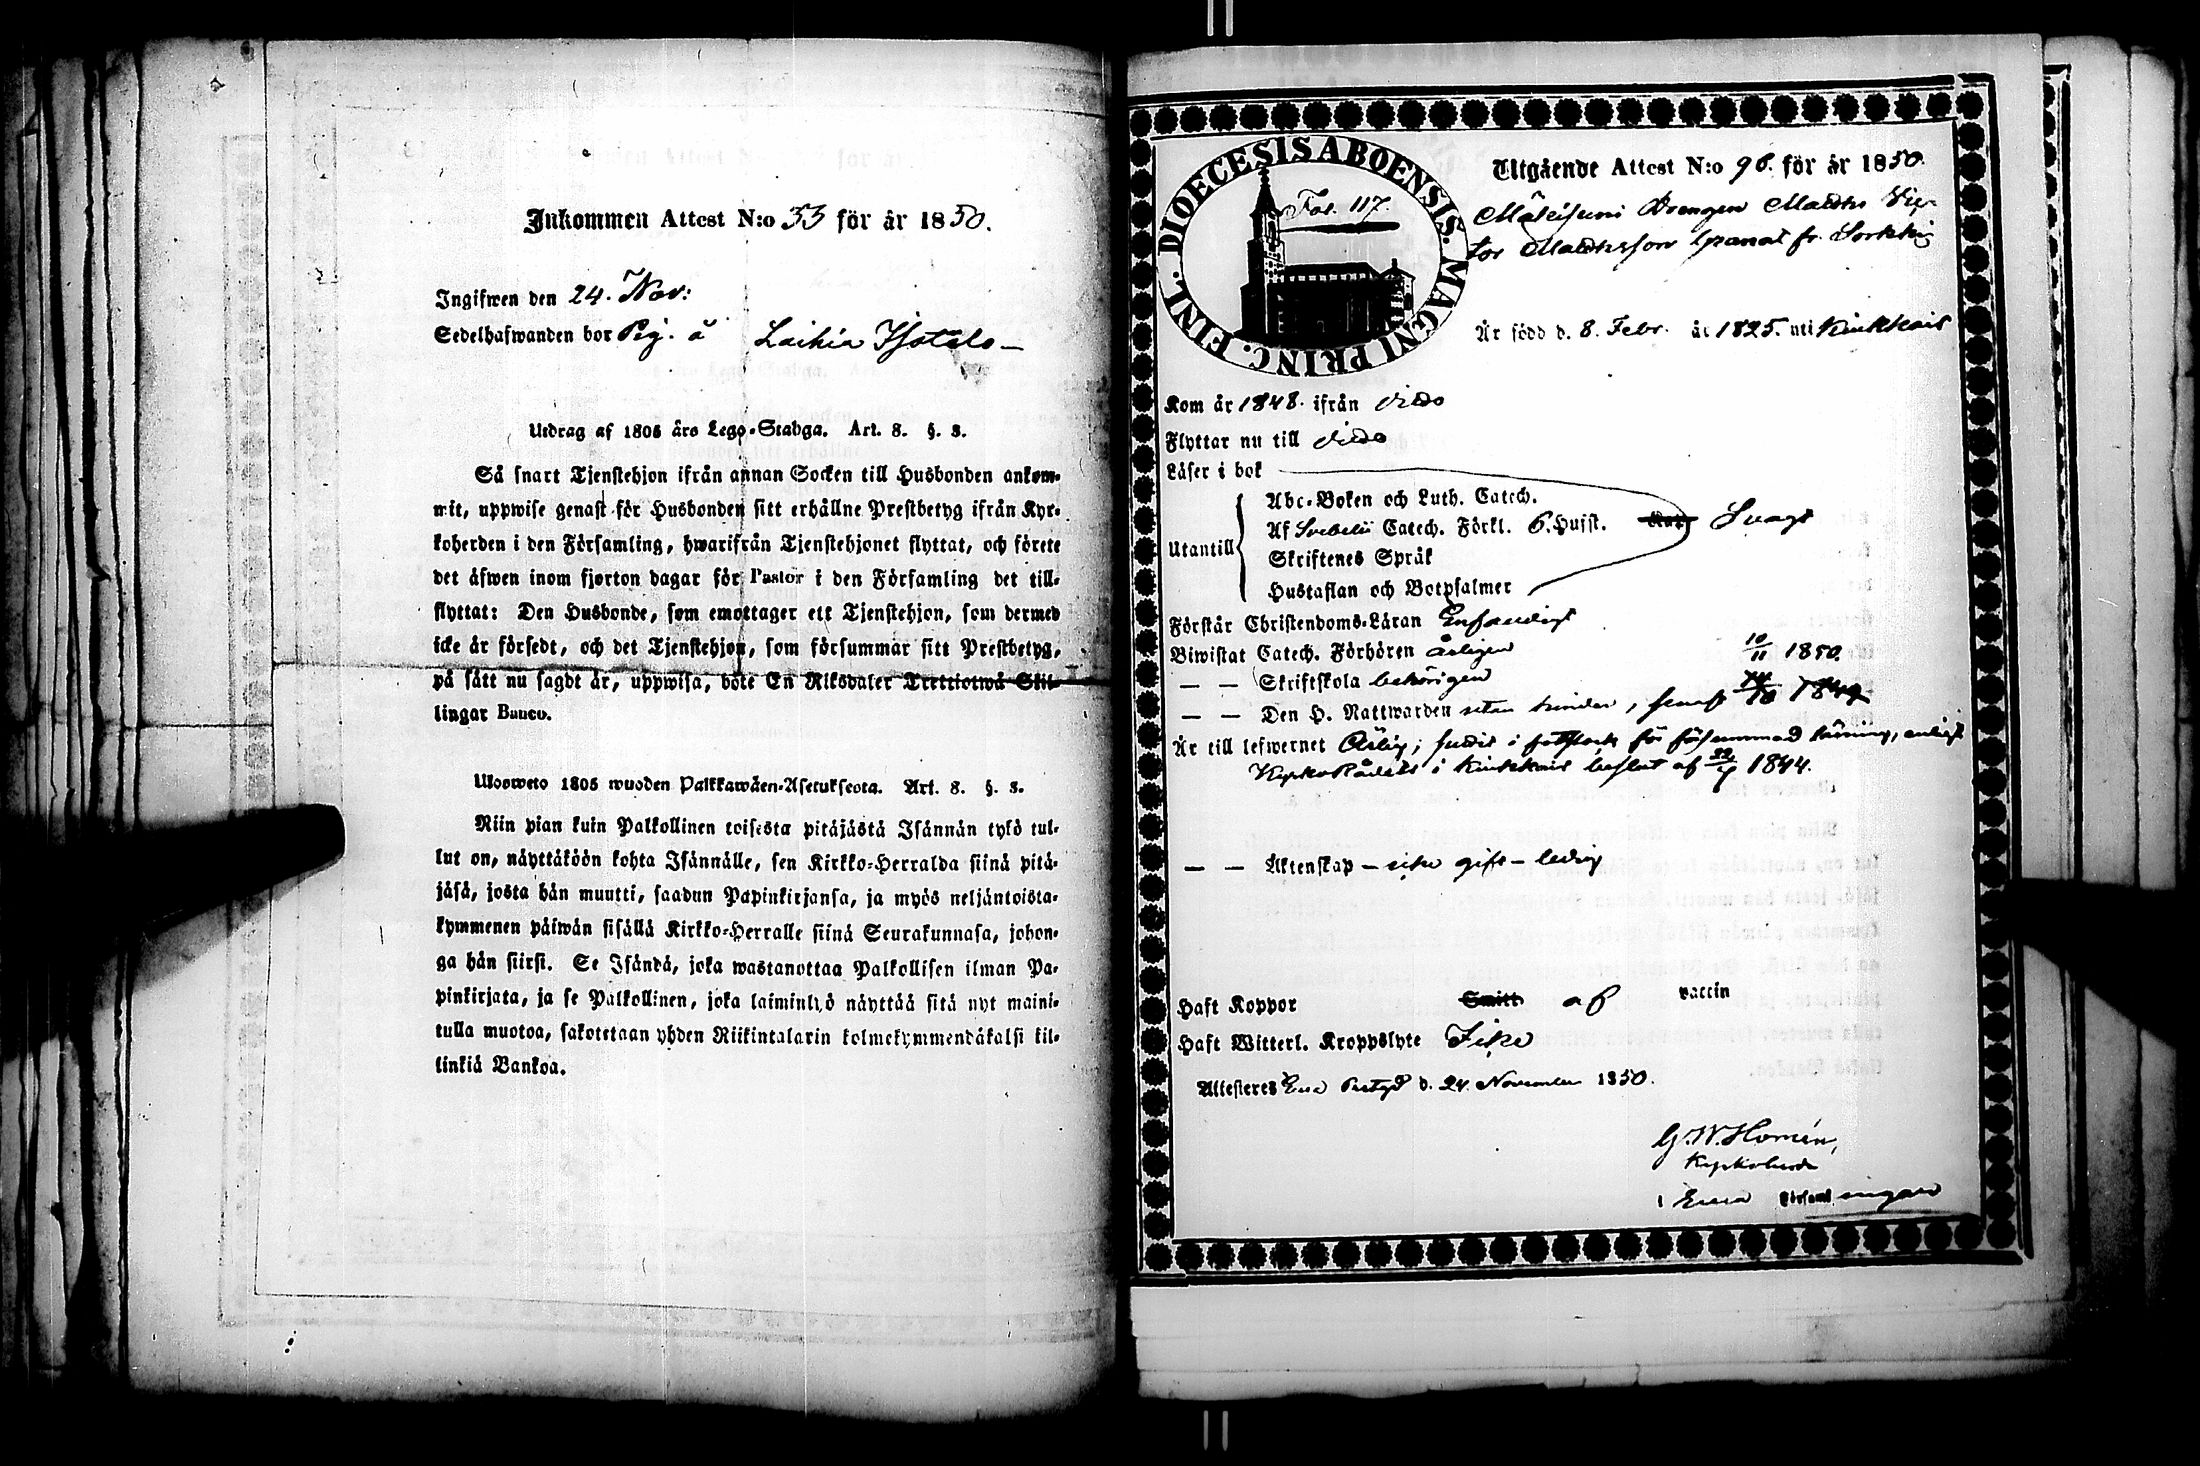 Inkommen Attest N:o 33 för år 1850.
Ingifwen den 24. Nov:
Sedelhafwanden bor Pig. å Laihia Isotalo —
Utdrag af 1805 års Lego-Stadga. Art. 8. §. 3.
Så snart Tjenstehjon ifrån annan Socken till Husbonden ankom-
mit, uppwise genast för Husbonden sitt erhållne Prestbetyg ifrån Kyr-
koherden i den Församling, hwarifrån Tjenstehjonet flyttat, och förete
det äfwen inom fjorton dagar för Pastor i den Församling det till-
flyttat: Den Husbonde, som emottager ett Tjenstehjon, som dermed
icke är försedt, och det Tjenstehjon, som försummar sitt Prestbetyg,
på sätt nu sagdt är, uppwisa, böte En Riksdaler Trettiotwå Skil-
lingar Banco.
Ulosweto 1805 wuoden Palkkawäen-Asetuksesta. Art. 8. §. 3.
Niin pian kuin Palkollinen toisesta pitäjästä Isännän tykö tul-
lut on, näyttäköön kohta Isännälle, sen Kirkko-Herralda siinä pitä-
jäsä, josta hän muutti, saadun Papinkirjansa, ja myös neljäntoista-
kymmenen päiwän sisällä Kirkko-Herralle siinä Seurakunnasa, johon-
ga hän siirsi. Se Isändä, joka wastanottaa Palkollisen ilman Pa-
pinkirjata, ja se Palkollinen, joka laiminlyö näyttää sitä nyt maini-
tulla muotoa, sakotetaan yhden Riikintalarin kolmekymmendäkaksi kil-
linkiä Bankoa.
DIOECESIS ABOENSIS. MAGNI PRINC. FINL.
Fol. 117.
Utgående Attest N:o 96. för år 1850.
Drengen Matths
Matthsson Granat fr. Sorkkis
Är född d. 8. Febr. år 1825. uti Kiukkais
Kom år 1848. ifrån dito
Flyttar nu till dito
Läser i bok
Utantill
Abc-Boken och Luth. Catech.
Af Svebelii Catech. Förkl. 6. Husst. Svagt
Skriftenes Språk
Hustaflan och Botpsalmer
Förstår Christendoms-Läran Enfaldigt
Biwistat Catech. Förhören årligen 10/11 1850.
— — Skriftskola behörigen
— — Den H. Nattwarden utan hinder, senast 1849
Är till lefwernet Ärlig; suttit i fotstock för försummad läsning, enligt
KyrkoRådets i Kiukkais beslut af 1844.
— — Äktenskap — icke gift — ledig
Haft Koppor Smitt af vaccin
Haft Witterl. Kroppslyte Icke
Attesteras Eura Prstgd d. 24. November 1850.
G. W. Homén,
Kyrkoherde
i Eura Församlingar